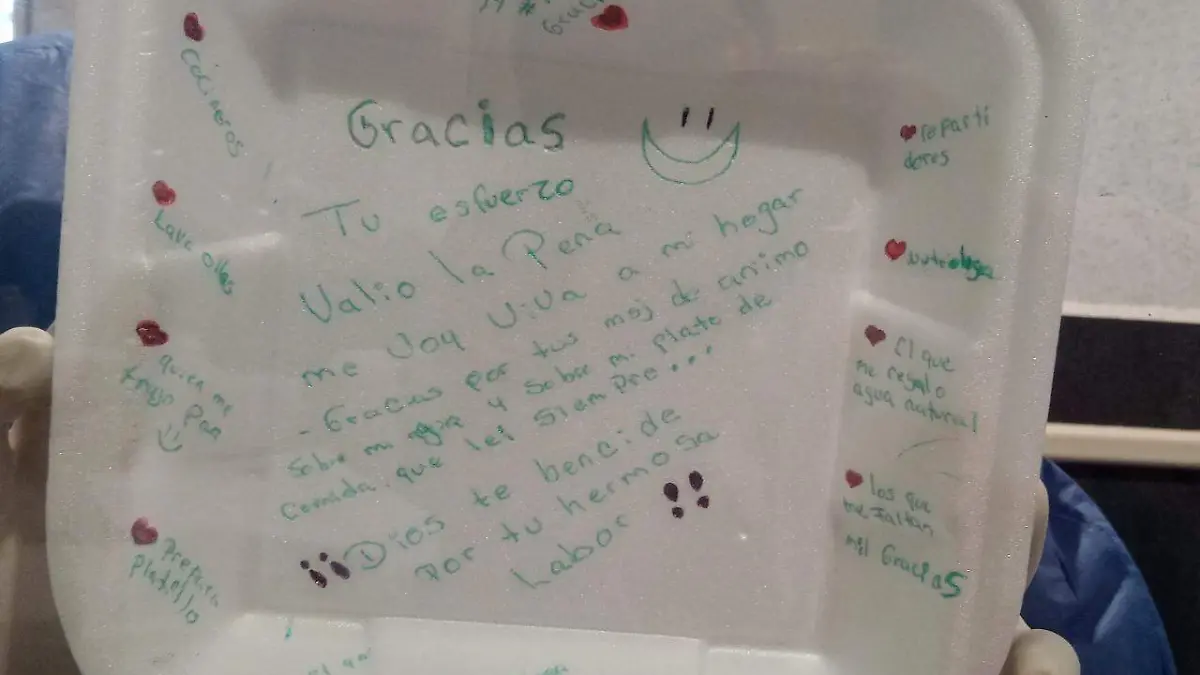 Gracias
Cocineros
Lava ollas
quien me
trajo Pan
Prepara
platillo
Gracias
Tu esfuerzo
Valio la Pena
me voy viva a mi hogar
- Gracias por tus msj de animo
Sobre mi agua y sobre mi plato de
Comida, que lei siempre...
Dios te bencide
por tu hermosa
Labor
reparti
dores
Nutriologa
El que
me regalo
agua natural
los que
me faltan
Mil Gracias